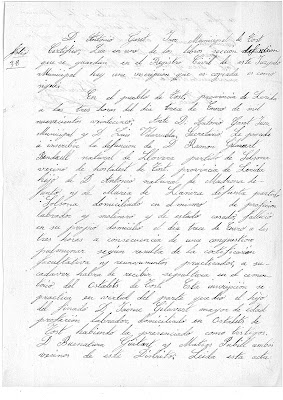 D. Antonio Giret Juez Municipal de Tost
Certifico, Que en uno de los libros sección defunciones
que se guardan en el Registro Civil de este Juzgado
Municipal hay una inscripcion que es copiada es como
sigue
En el pueblo de Tost, provincia de Lerida
a las tres horas del dia trece de Enero de mil
novecientos veinticinco, Ante D. Antonio Giret Juez
Municipal y D. Secretario, Se procede
a inscribir la defuncion de D. Ramon
natural de Llovera partido de Solsona
vecino de hostalet de Tost provincia de Lerida
hijo de D. Antonio natural de
y de Maria Llanera difunta partido
Solsona domiciliado en el mismo de profesion
labrador y molinero y de estado casado, falleció
en su propio domicilio el dia trece de Enero a las
tres horas a consecuencia de una congestion
pulmonar segun resulta de la certificación
facultativa y reconocimiento practicado, a su
cadaver habrá de recibir sepultura en el cemen
terio del Ostalets de Tost. Esta inscripción se
practica en virtud del parte que dió el hijo
del finado D. Jaime mayor de edad
profesion labrador, domiciliado en Ostalets de
Tost habiendo la presenciado como testigos
D. Buenaventura y Matias ambos
vecinos de este Distrito, Leida esta acta